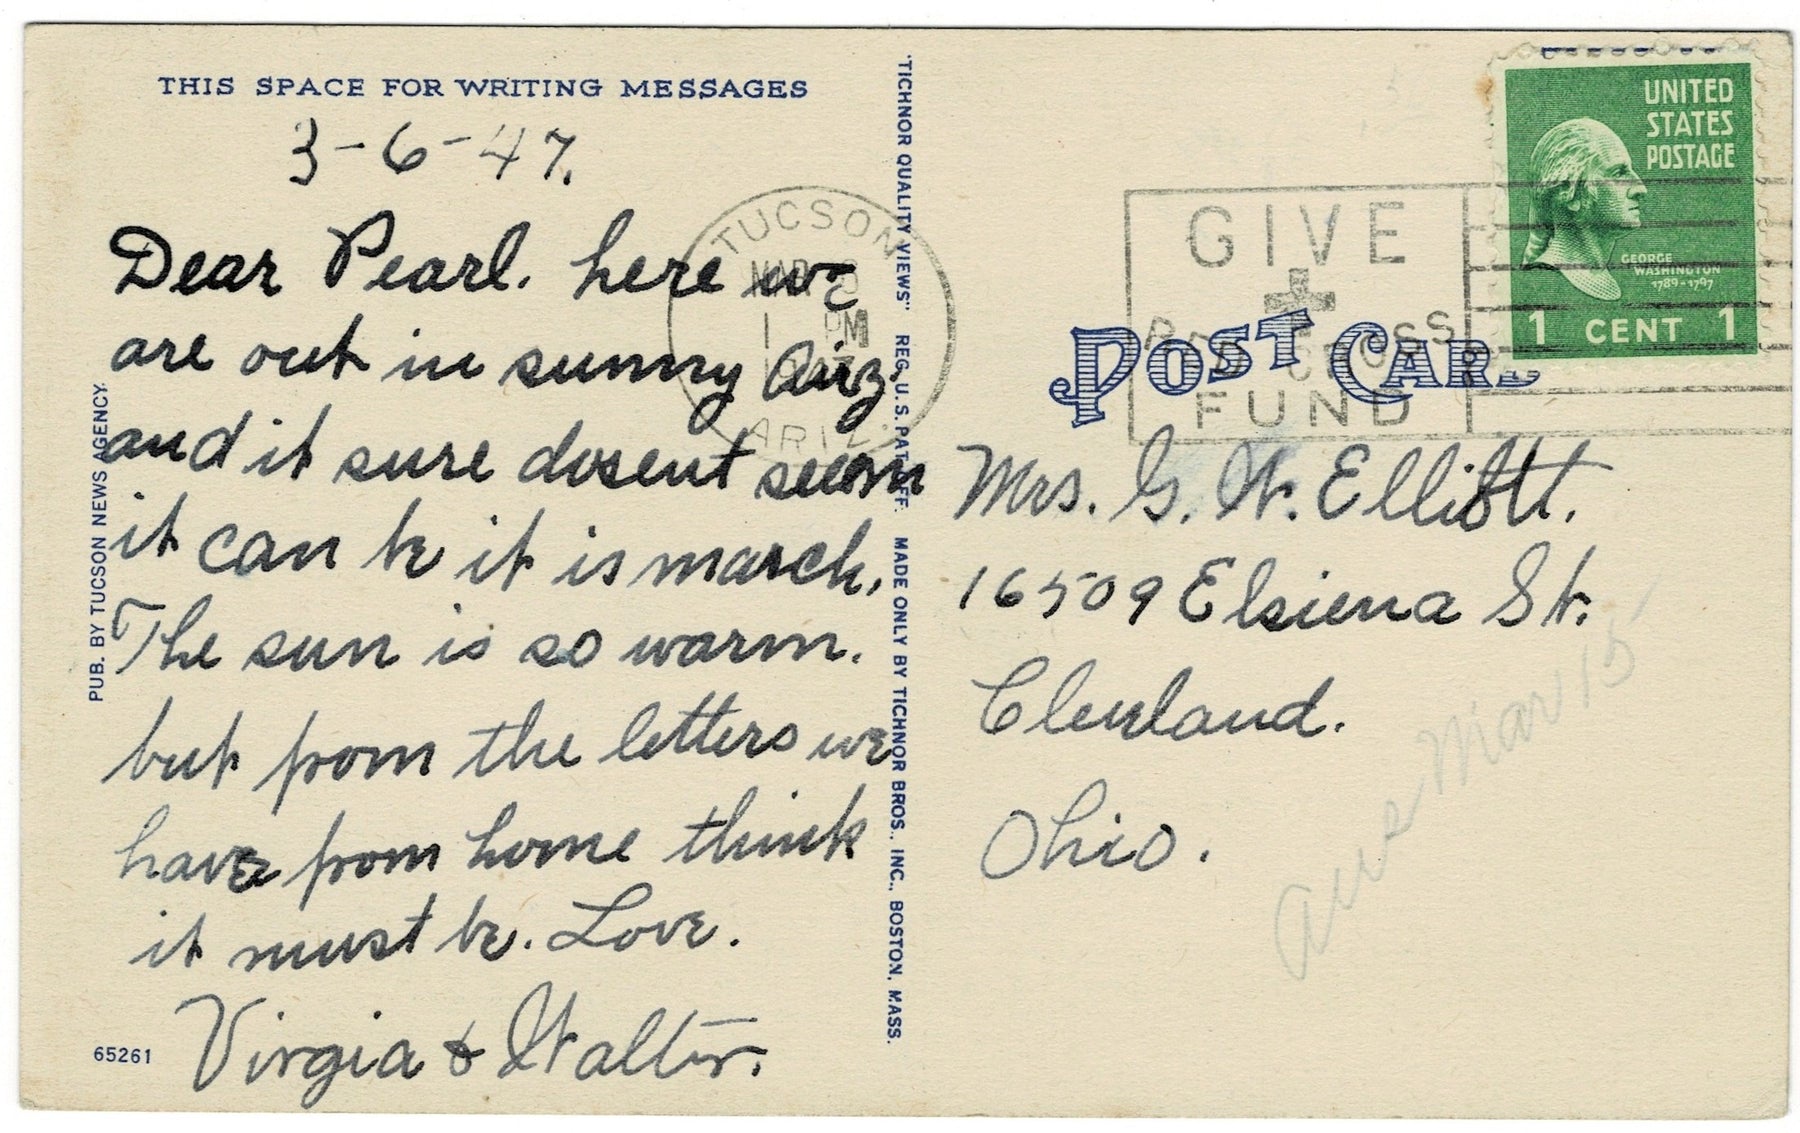 THIS SPACE FOR WRITING MESSAGES
3-6-47.
Dear Pearl. here we
are out in sunny Ariz.
and it sure dosent seem
it can be it is march,
The sun is so warm.
but from the letters we
have from home think
it must be. Love.
Virgia & Walter.
65261
PUB. BY TUCSON NEWS AGENCY.
"TICHNOR QUALITY VIEWS" REG. U.S. PAT. OFF. MADE ONLY BY TICHNOR BROS., INC., BOSTON, MASS.
TUCSON
MAR
1 PM
ARIZ.
GIVE
RED CROSS
FUND
UNITED
STATES
POSTAGE
GEORGE
WASHINGTON
1789-1797
1 CENT 1
POST CARD
Mrs. G. W. Elliott.
16509 Elsiena St.
Clevland.
Ohio.
Mar 15